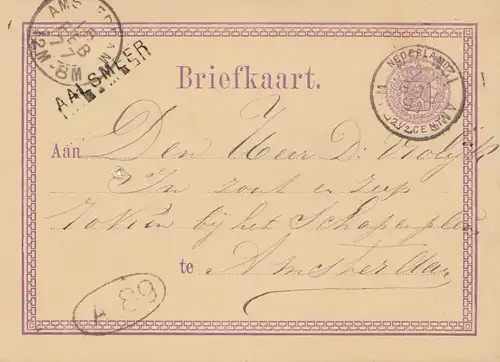 AMSTERDAM
AALSMEER
Briefkaart.
NEDERLAND
2½ CENT
Aan Den Heer D. Vrolijk
In zout en zeep
bij het Schapenplein
te Amsterdam
A 89